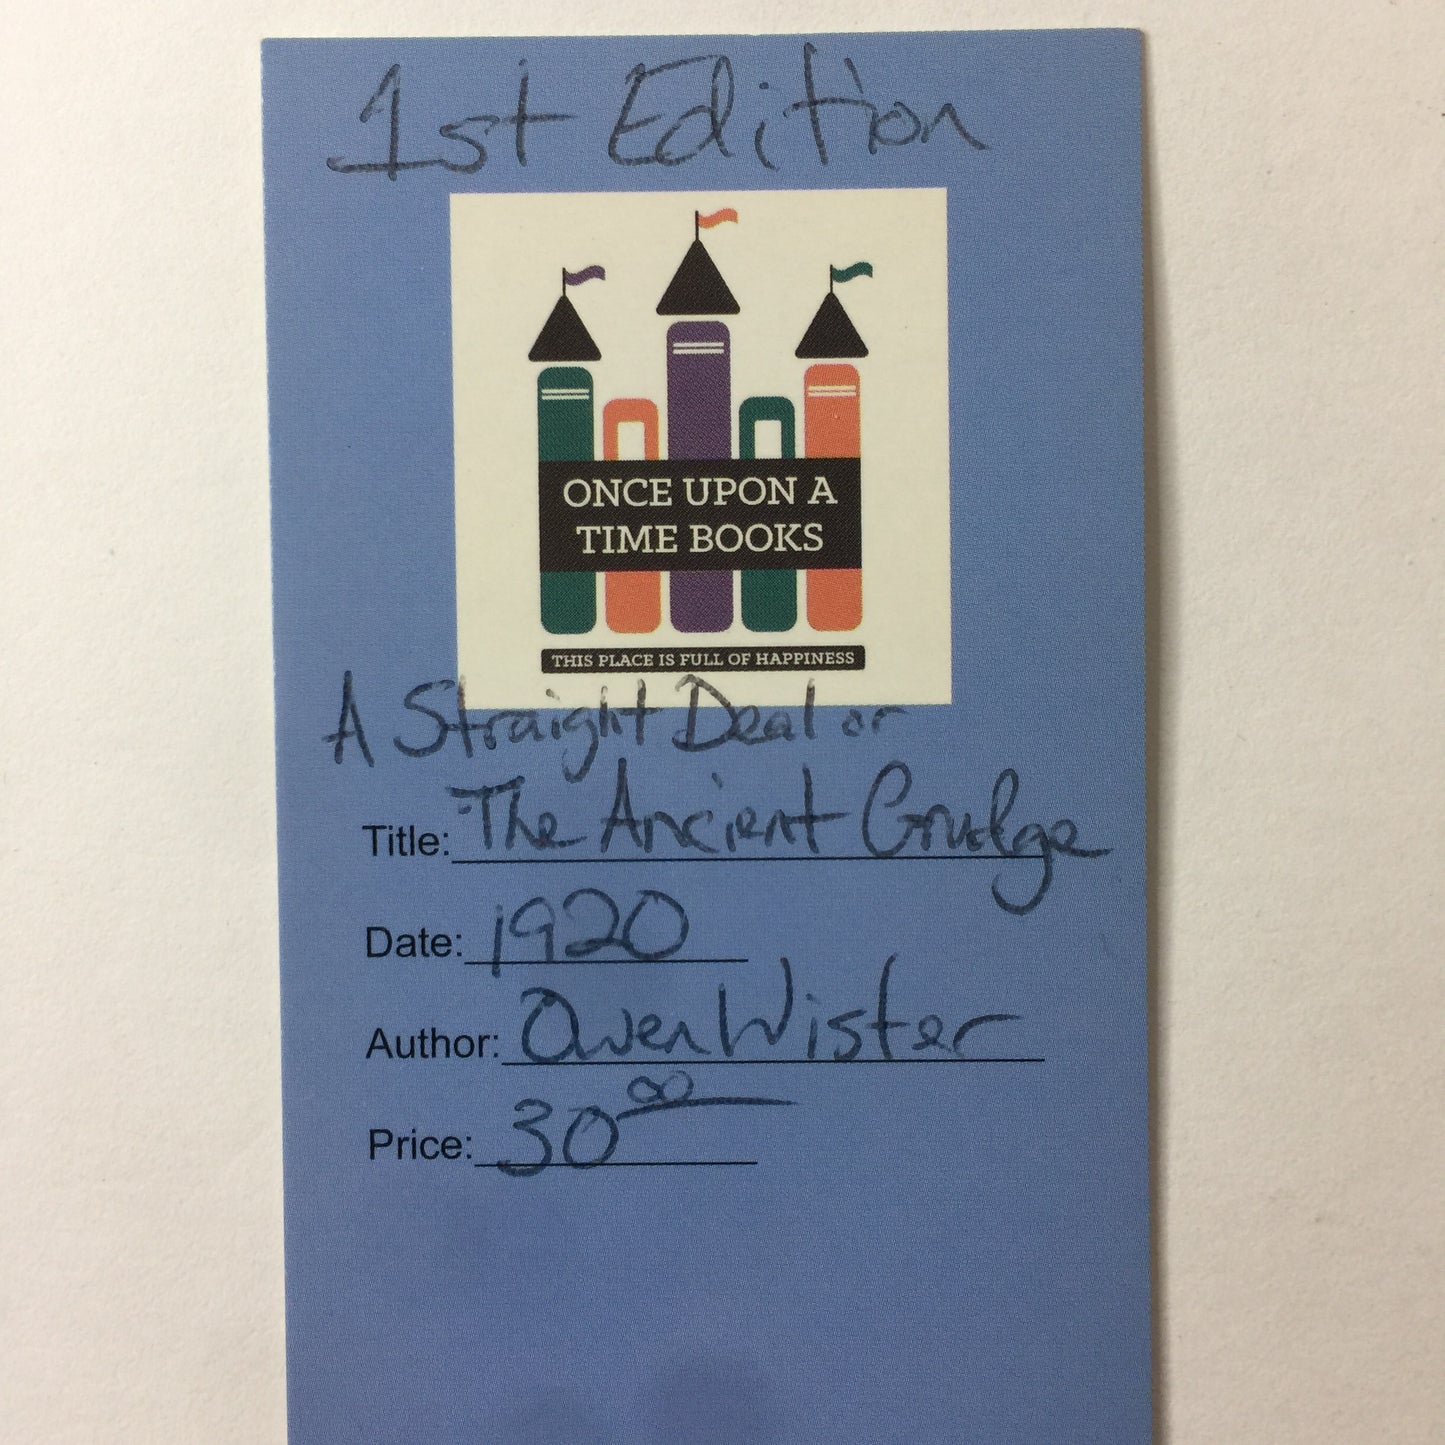 1st Edition
ONCE UPON A
TIME BOOKS
THIS PLACE IS FULL OF HAPPINESS
A Straight Deal or
Title: The Ancient Grudge
Date: 1920
Author: Owen Wister
Price: 30⁰⁰